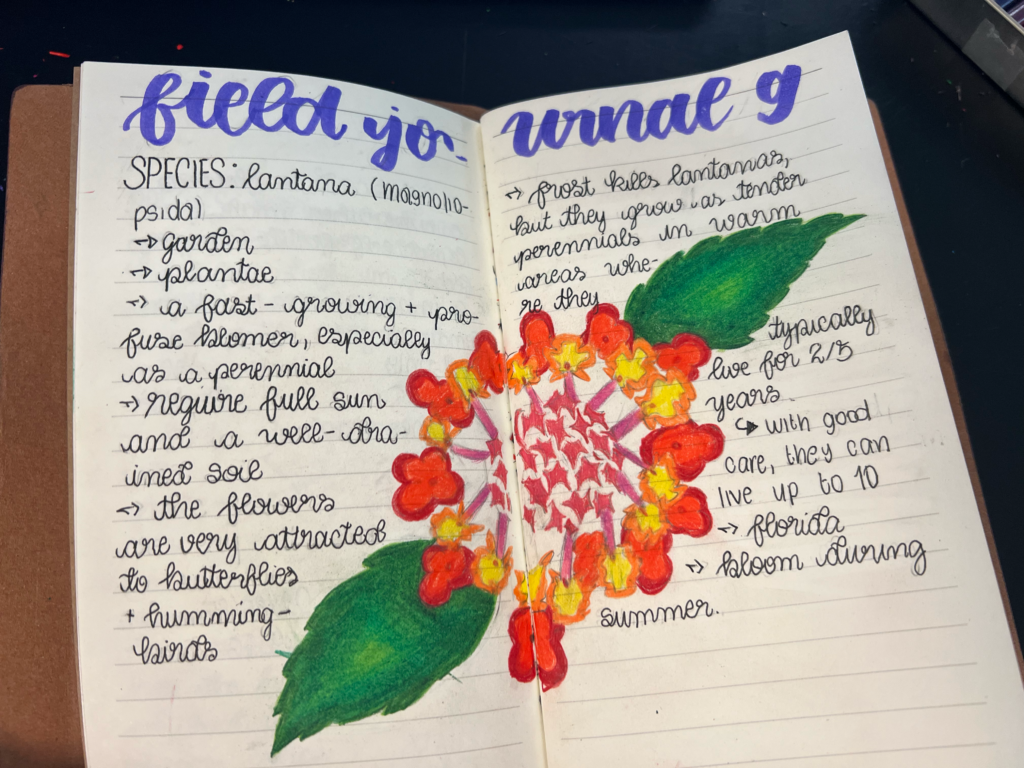 field jo-
SPECIES: lantana (magnolio-
psida)
→ garden
→ plantae
→ a fast-growing + pro-
fuse bloomer, especially
as a perennial
→ require full sun
and a well-dra-
ined soil
→ the flowers
are very attracted
to butterflies
+ humming-
birds
urnal 9
→ frost kills lantanas,
but they grow as tender
perennials in warm
areas whe-
re they
typically
live for 2/5
years.
↳ with good
care, they can
live up to 10
→ florida
→ bloom during
summer.